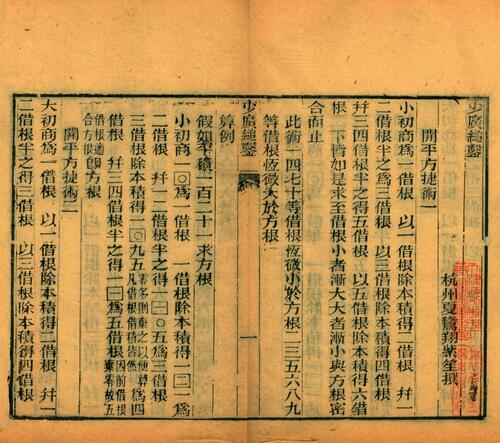 少廣縋鑿
杭州夏鸞翔紫笙撰
開平方捷術一
小初商爲一借根　以一借根除本積得二借根　幷一
二借根半之爲三借根　以三借根除本積得四借根
幷三四借根半之得五借根　以五借根除本積得六借
根　下皆如是求至借根小者漸大大者漸小與方根密
合而止
此術一四七十等借根恆微小於方根二三五六八九
等借根恆微大於方根
少廣縋鑿
一
算例
假如平積一百二十一求方根
小初商一〇爲一借根　一借根除本積得一二一爲
二借根　幷一二借根半之得一一〇五爲三借根
三借根除本積得一〇九五零多則棄之以便算凡借根借積皆然爲四
借根　幷三四借根半之得一一爲五借根因前借根棄零故五
借根適合方根卽方根
開平方捷術二
大初商爲一借根　以一借根除本積得二借根　幷一
二借根半之得三借根　以三借根除本積得四借根